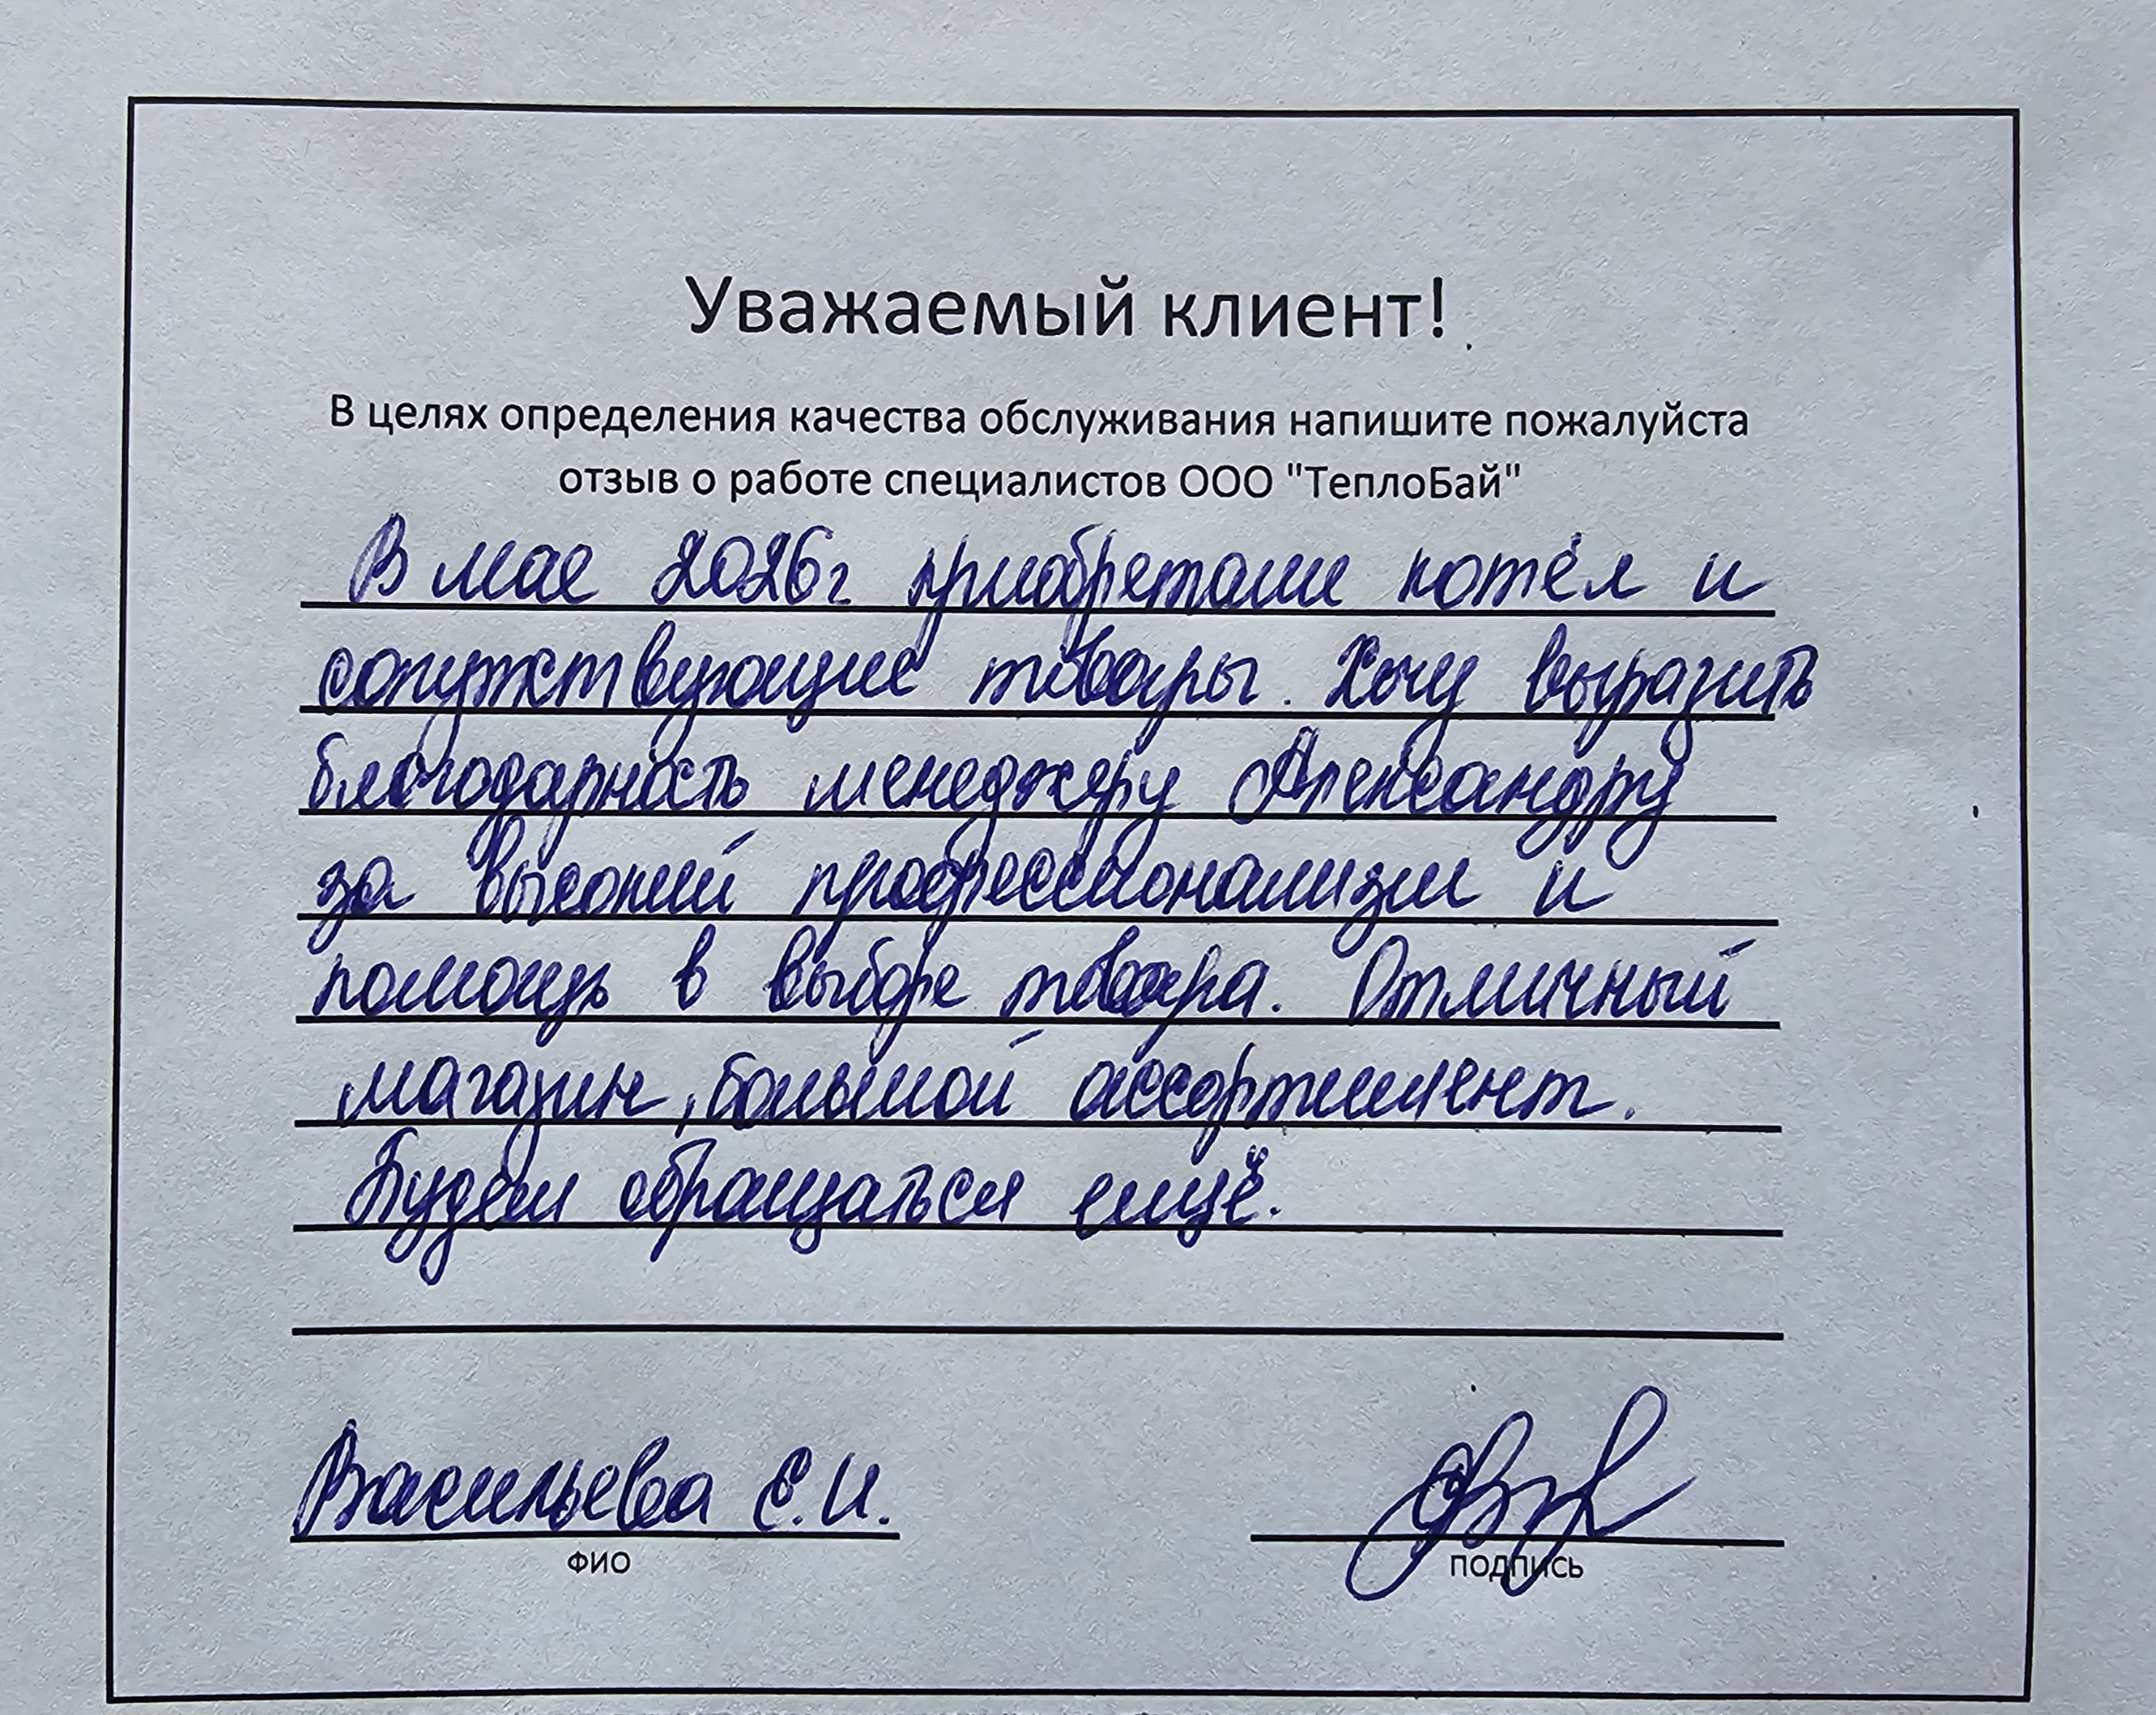 Уважаемый клиент!
В целях определения качества обслуживания напишите пожалуйста
отзыв о работе специалистов ООО "ТеплоБай"
В мае 2026г приобретали котёл и
сопутствующие товары. Хочу выразить
благодарность менеджеру Александру
за высокий профессионализм и
помощь в выборе товара. Отличный
магазин, большой ассортимент.
Будем обращаться ещё.
Васильева Е.И.
ФИО
ПОДПИСЬ